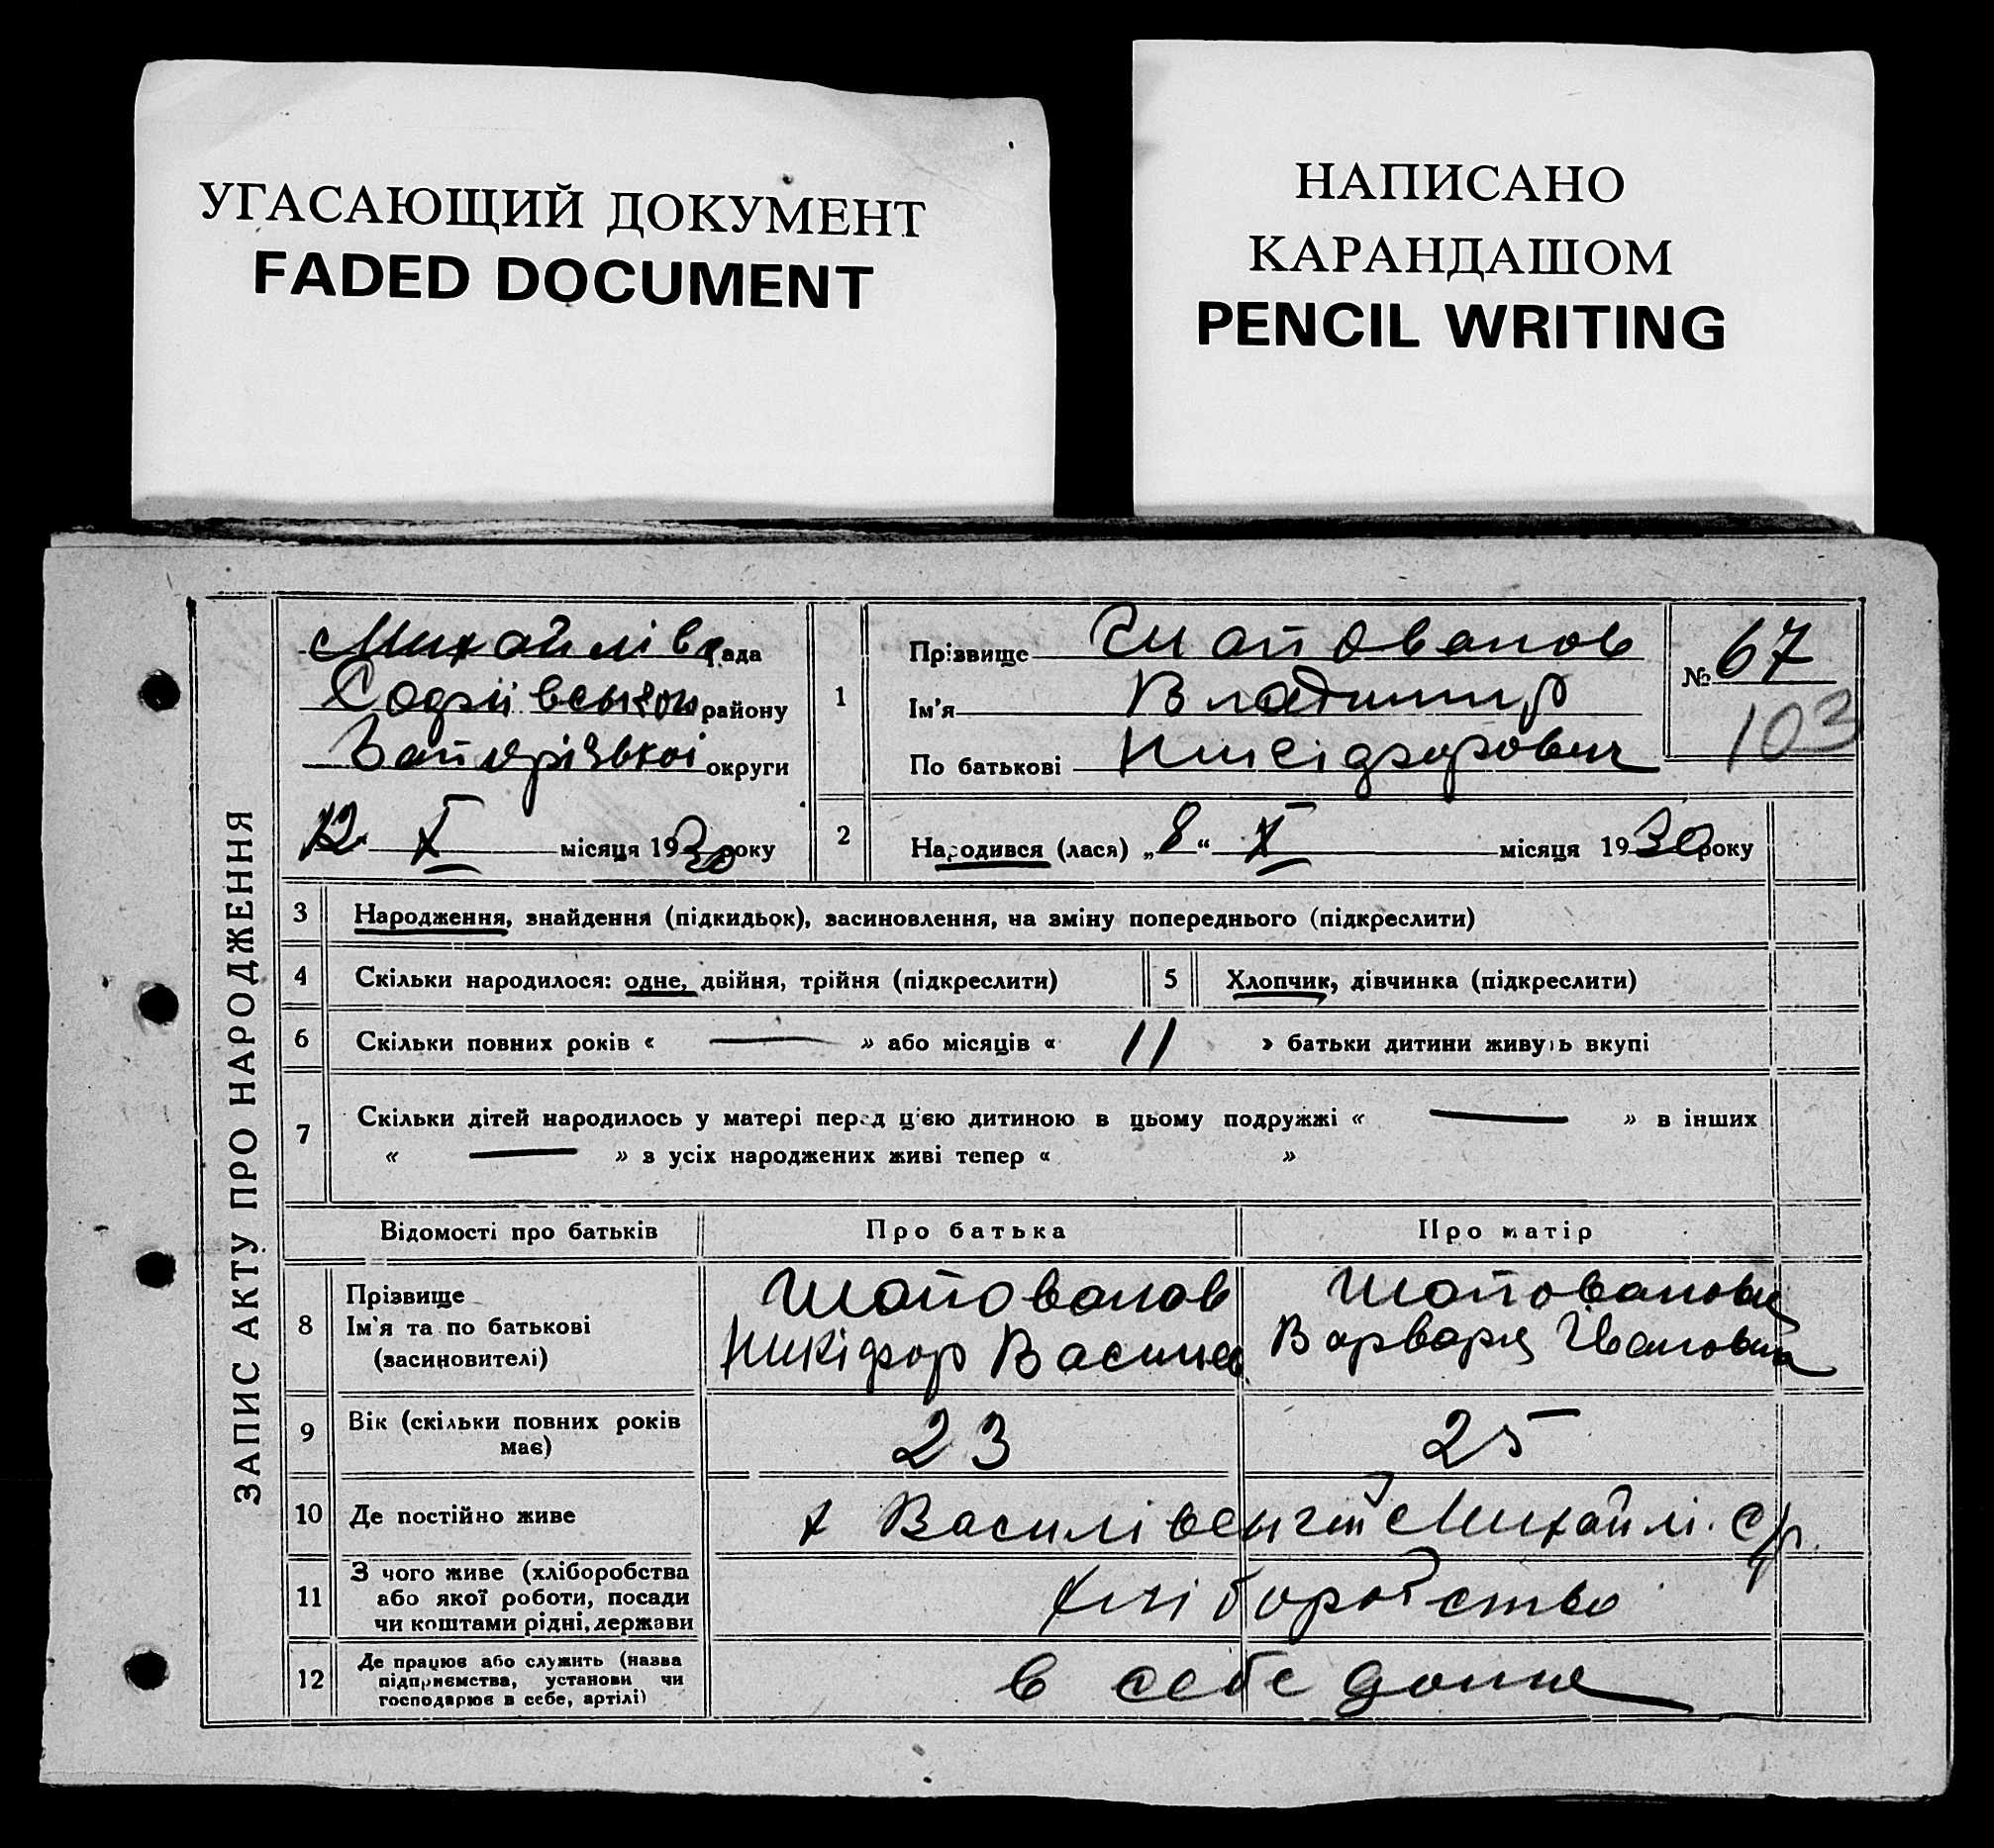 УГАСАЮЩИЙ ДОКУМЕНТ
FADED DOCUMENT
НАПИСАНО
КАРАНДАШОМ
PENCIL WRITING
ЗАПИС АКТУ ПРО НАРОДЖЕННЯ
Михайлівс рада
Софіївського району
Запорізької округи
12 X місяця 1930 року
1
Прізвище Шаповалов
Ім'я Владимир
По батькові Никіфорович
№ 67
103
2
Народився (лася) „8“ X місяця 1930 року
3 Народження, знайдення (підкидьок), засиновлення, на зміну попереднього (підкреслити)
4 Скільки народилося: одне, двійня, трійня (підкреслити)
5 Хлопчик, дівчинка (підкреслити)
6 Скільки повних років « — » або місяців « 11 » батьки дитини живуть вкупі
7 Скільки дітей народилось у матері перед ц'єю дитиною в цьому подружжі « — » в інших
« — » з усіх народжених живі тепер « »
Відомості про батьків
Про батька
Про матір
8
Прізвище
Ім'я та по батькові
(засиновителі)
Шаповалов
Никіфор Василів
Шаповалова
Варвара Івановна
9
Вік (скільки повних років
має)
23
25
10 Де постійно живе
х Василівський Михайлі. с/р.
11
З чого живе (хліборобства
або якої роботи, посади
чи коштами рідні, держави
хліборобство
12
Де працює або служить (назва
підприємства, установи чи
господарює в себе, артілі)
в себе дома